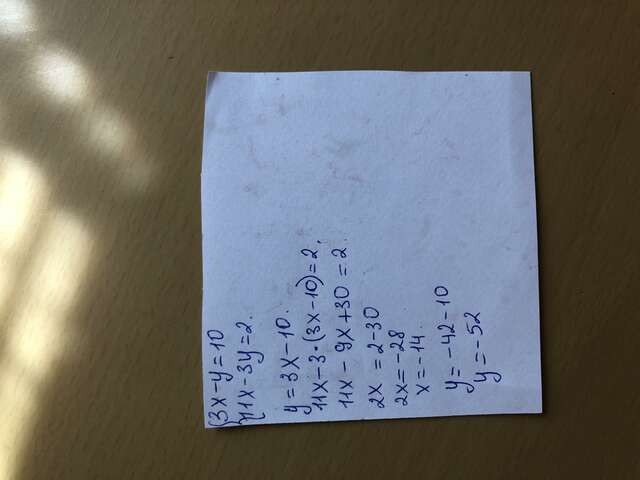 {3x-y=10
{11x-3y=2.
y=3x-10.
11x-3·(3x-10)=2,
11x-9x+30=2.
2x=2-30
2x=-28
x=-14.
y=-42-10
y=-52